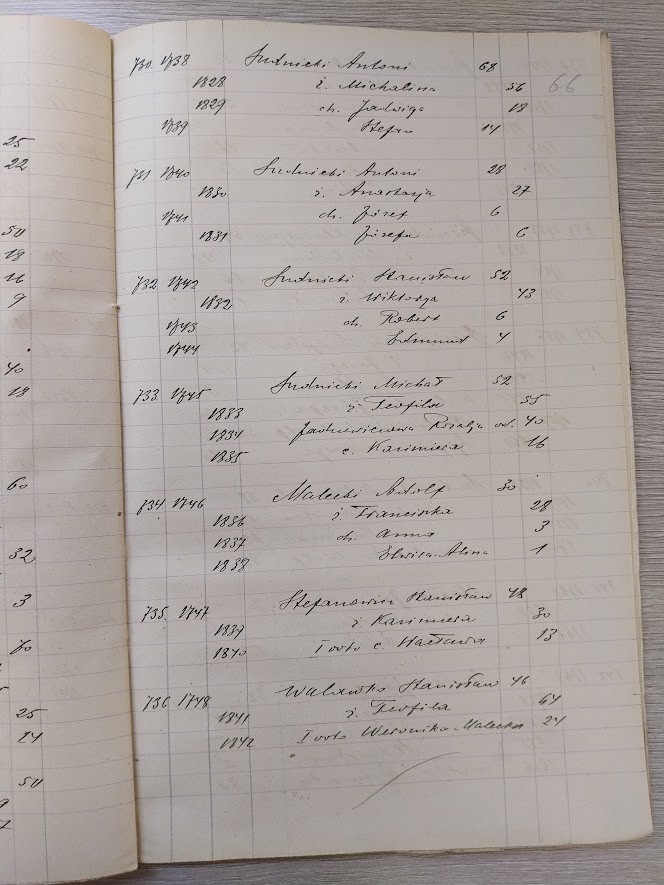 25
22
50
18
16
9
40
18
60
32
3
60
25
14
50
66
730 1738 Sudnicki Antoni 68
1828 ż. Michalina 56
1829 ch. Jadwiga 18
1739 Stefan 14
731 1740 Sudnicki Antoni 28
1830 ż. Anastazja 27
1741 ch. Józef 6
1831 Józefa 6
732 1742 Sudnicki Stanisław 52
1832 ż. Wiktorya 43
1743 ch. Robert 6
1744 Edmund 4
733 1745 Sudnicki Michał 52
1833 ż. Teofila 55
1834 Rozalja wd. 40
1835 c. Kazimiera 16
734 1746 Malecki Adolf 30
1836 ż. Franciszka 28
1837 ch. Anna 3
1838 Elwira-Alina 1
735 1747 Stefanowicz Stanisław 48
1839 ż. Kazimiera 30
1840 I voto c. Wacława 13
736 1748 Waławko Stanisław 46
1841 ż. Teofila 64
1842 I voto Weronika-Malecka 24